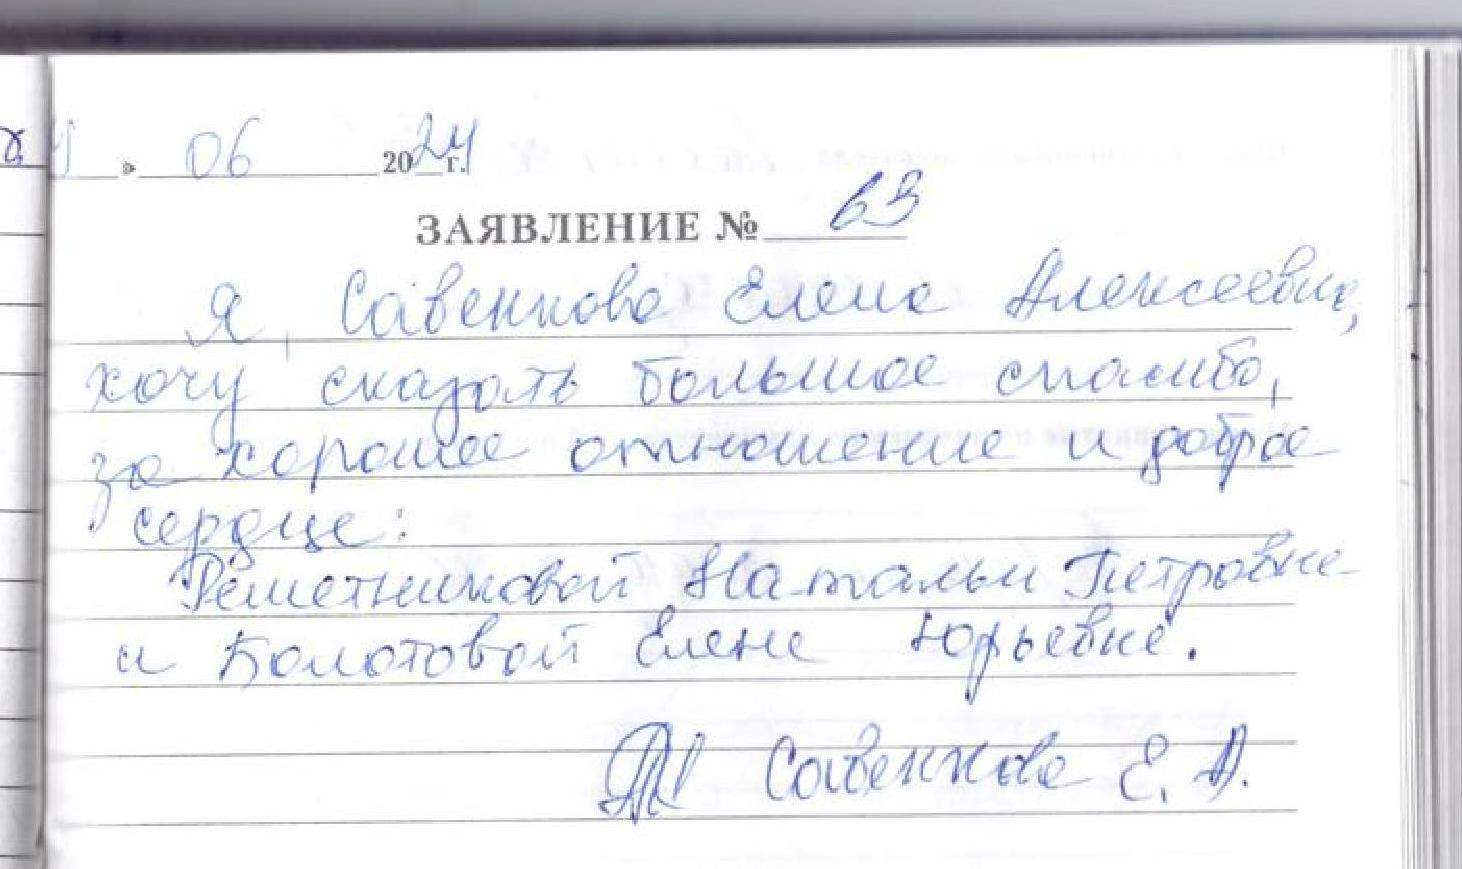 » 06 2024 г.
ЗАЯВЛЕНИЕ № 63
Я, Савенкова Елена Алексеевна,
хочу сказать большое спасибо,
за хорошее отношение и доброе
сердце:
Решетниковой Натальи Петровне
и Болотовой Елене Юрьевне.
Савенкова Е. А.